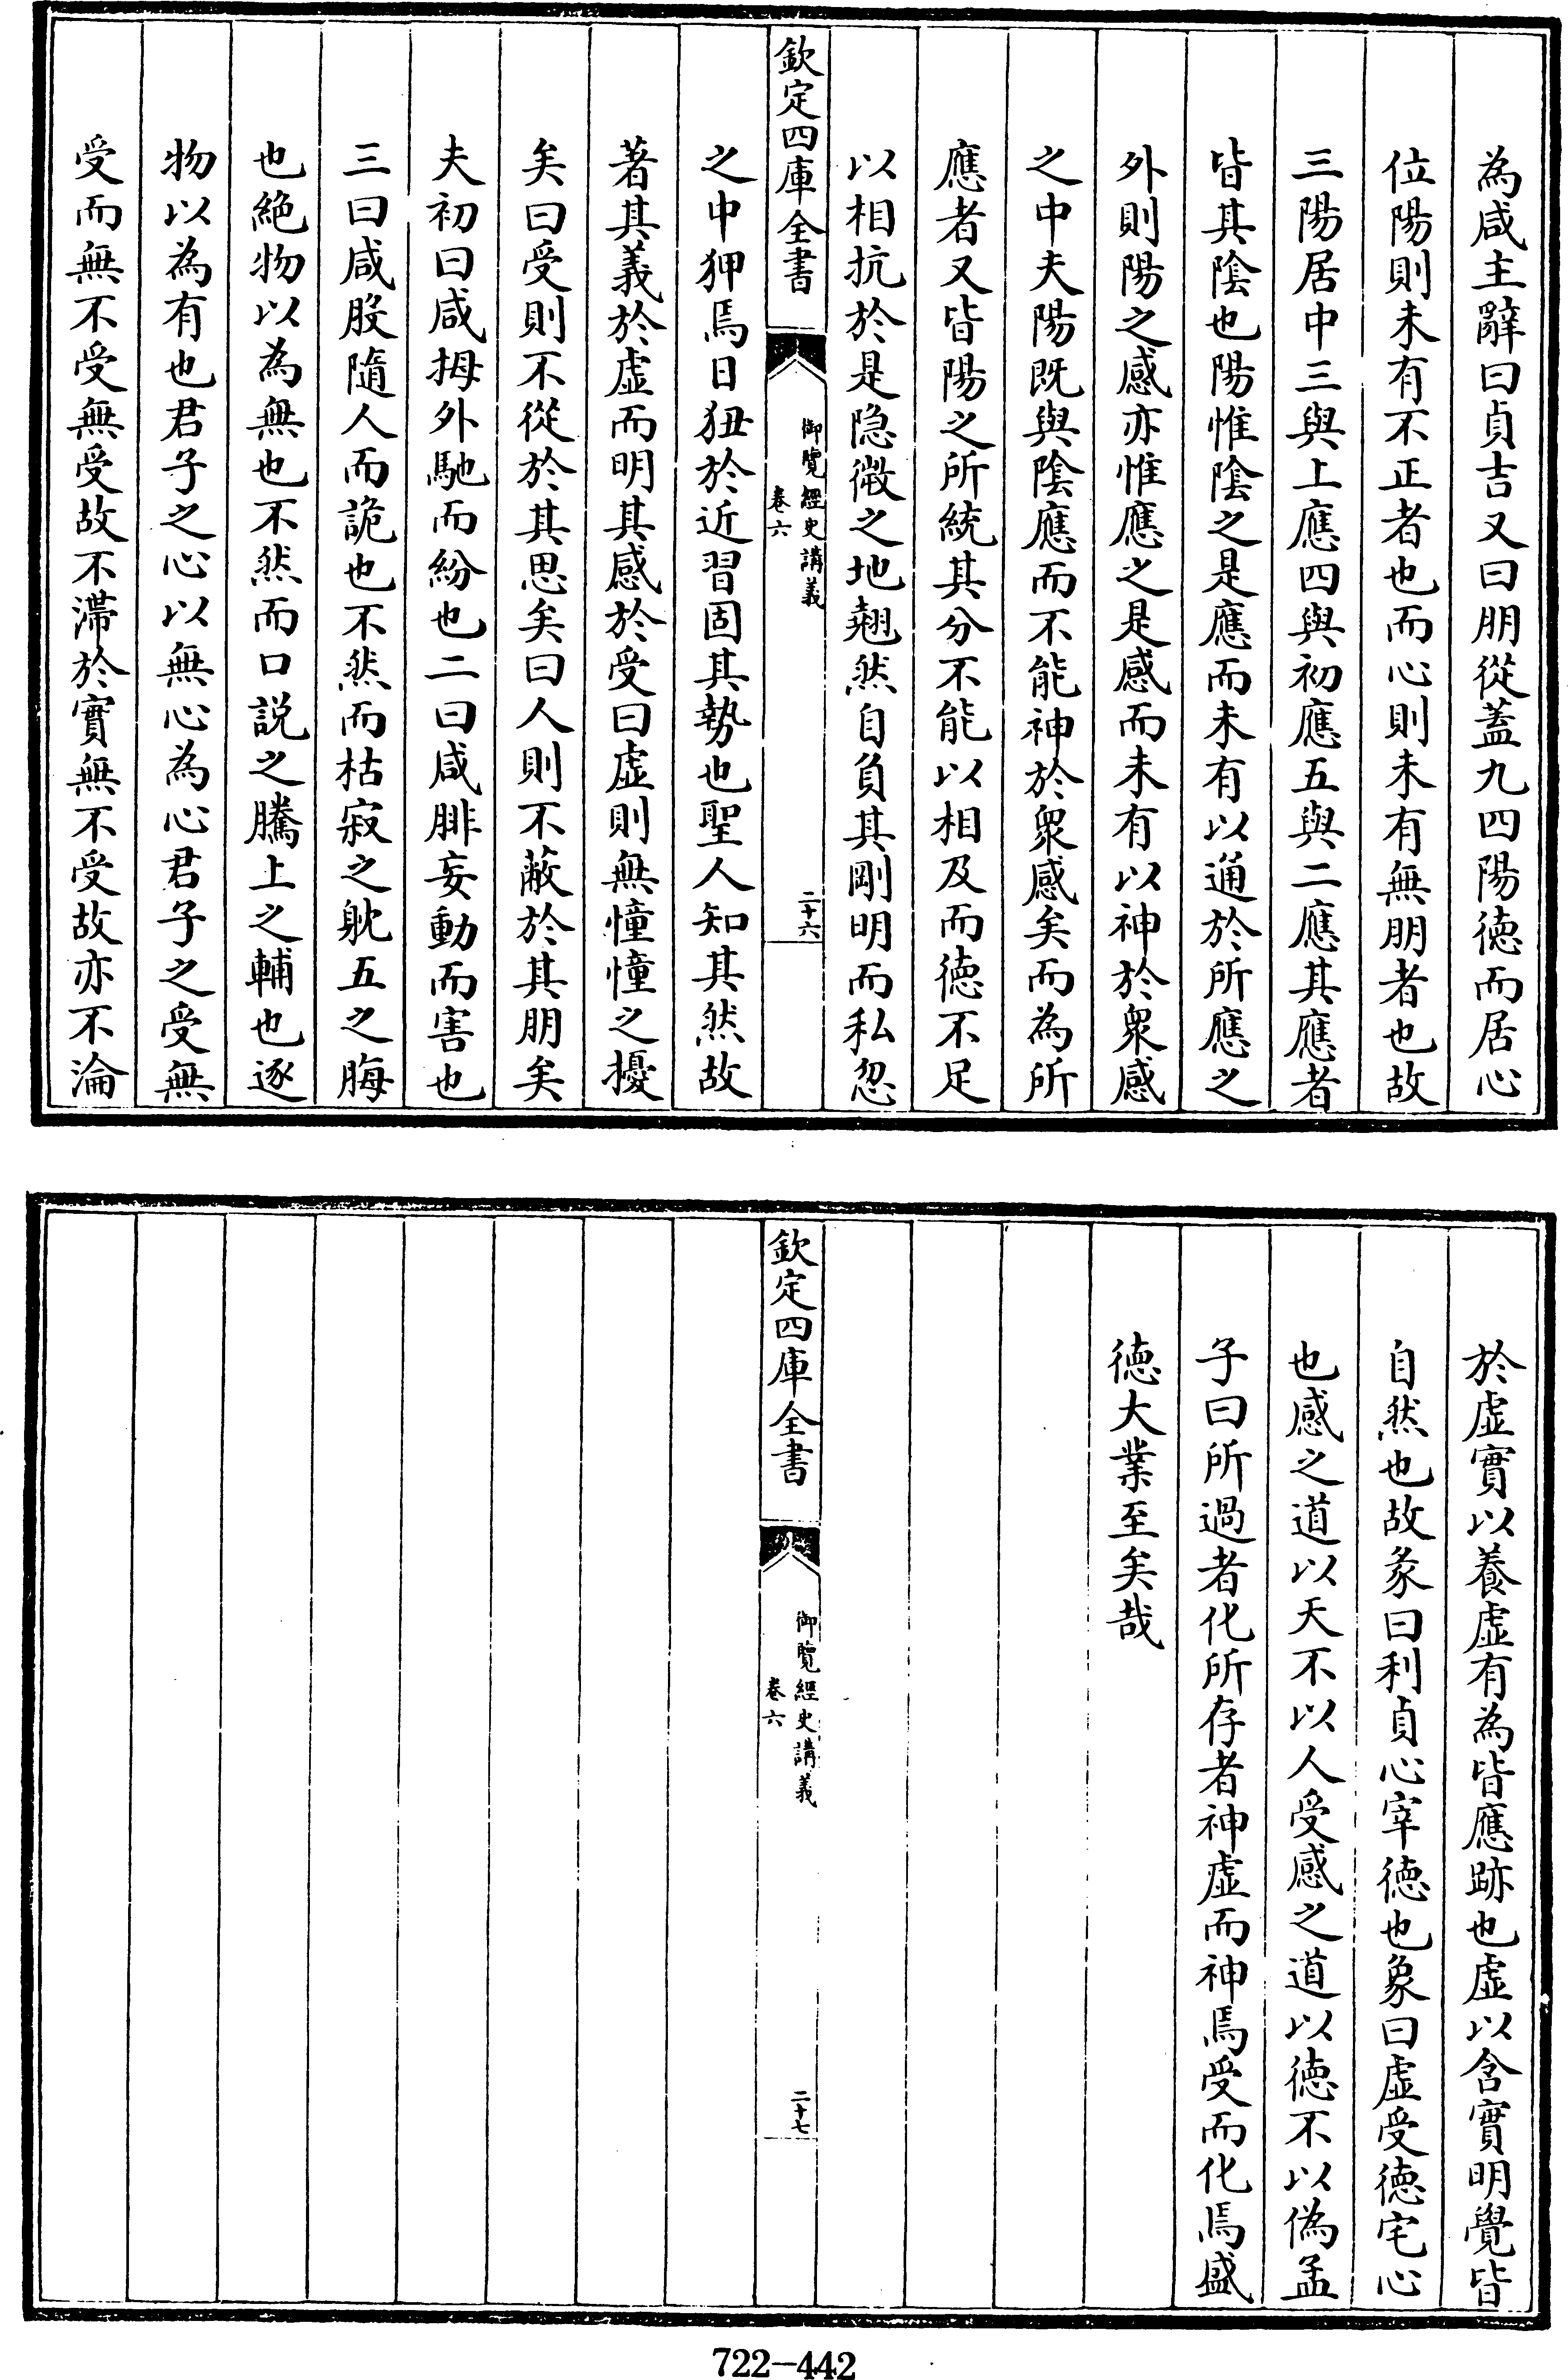 為咸主辭曰貞吉又曰朋從蓋九四陽徳而居心
位陽則未有不正者也而心則未有無朋者也故
三陽居中三與上應四與初應五與二應其應者
皆其陰也陽惟陰之是應而未有以通於所應之
外則陽之感亦惟應之是感而未有以神於衆感
之中夫陽既與陰應而不能神於衆感矣而為所
應者又皆陽之所統其分不能以相及而徳不足
以相抗於是隐微之地翹然自負其剛明而私忽
欽定四庫全書
御覽經史講義
卷六
二十六
之中狎焉日狃於近習固其勢也聖人知其然故
著其義於虚而明其感於受曰虚則無憧憧之擾
矣曰受則不從於其思矣曰人則不蔽於其朋矣
夫初曰咸拇外馳而紛也二曰咸腓妄動而害也
三曰咸股隨人而詭也不然而枯寂之躭五之脢
也絶物以為無也不然而口説之騰上之輔也逐
物以為有也君子之心以無心為心君子之受無
受而無不受無受故不滯於實無不受故亦不淪
於虚實以養虚有為皆應跡也虚以含實明覺皆
自然也故彖曰利貞心宰徳也象曰虚受徳宅心
也感之道以天不以人受感之道以徳不以偽孟
子曰所過者化所存者神虚而神焉受而化焉盛
徳大業至矣哉
欽定四庫全書
御覽經史講義
卷六
二十七
722-442